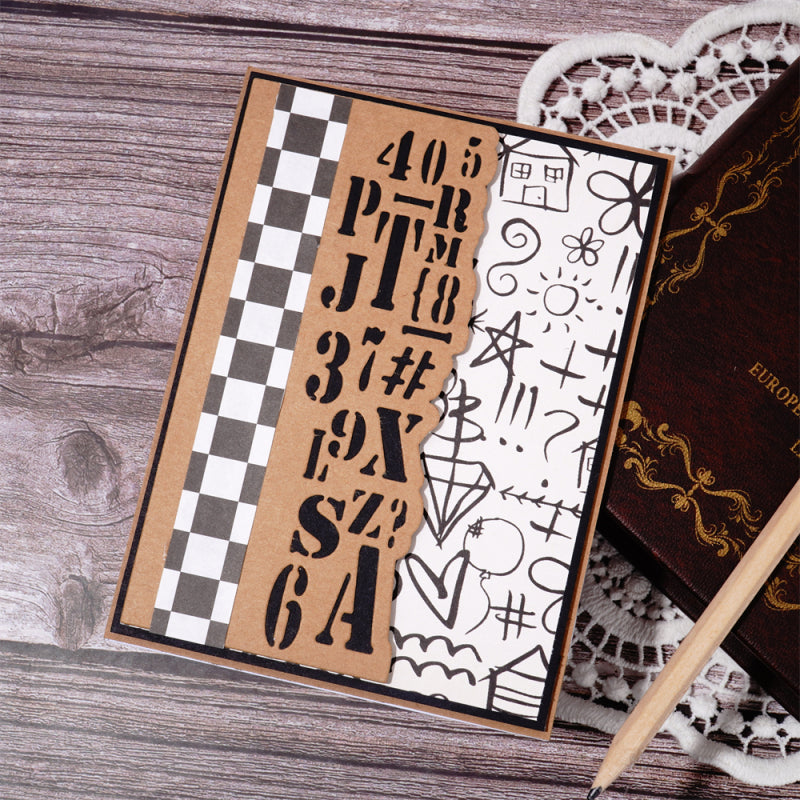 405
P–R
TM
J{8
–
37#
L9X
SZ?
6A
!!
!!!
?
#
#
EUROPE